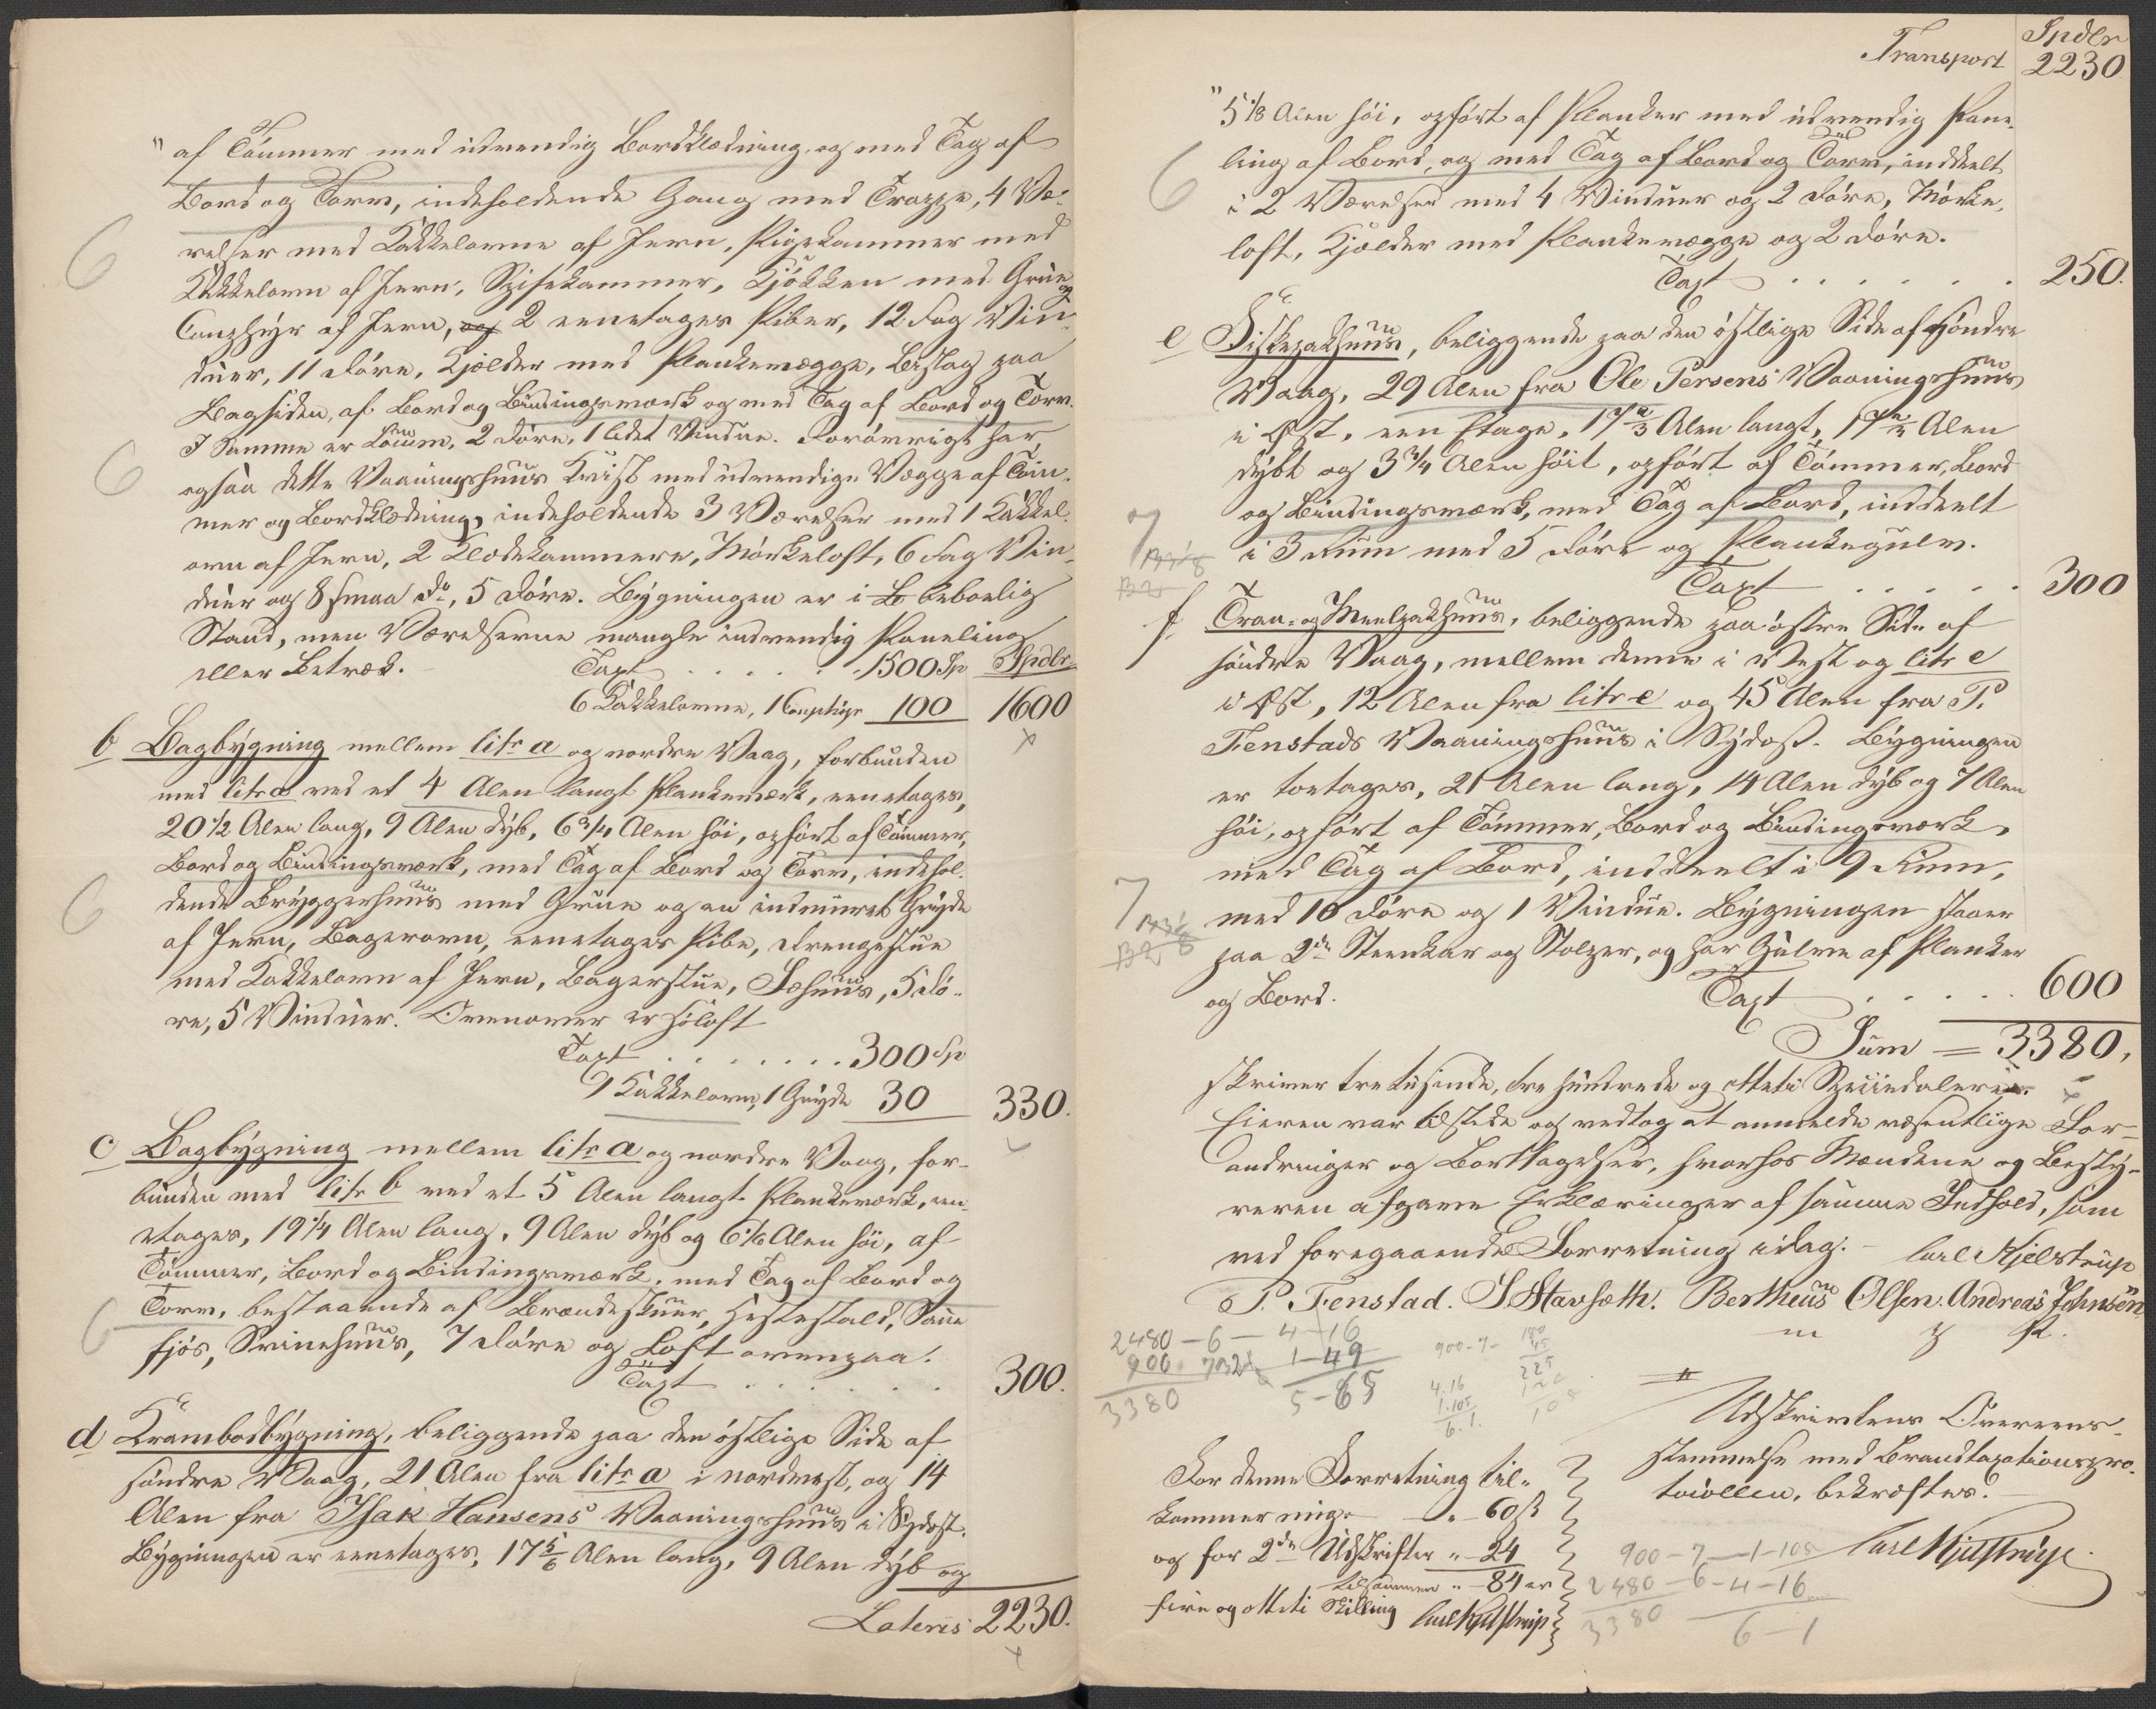 " af Tömmer med udvendig Bordklædning, og med Tag af
Bord og Torv, indeholdende Gang med Trappe, 4 Væ-
relser med Kakkelovne af Jern, Pigekammer med
Kakkelovn af Jern, Spisekammer, Kjökken med Grue og
Comphyr af Jern, og 2 eenetages Piber, 12 Fag Vin-
duer, 11 Döre, Kjelder med Plankevægge, Bislag paa
Bagsiden, af Bord og Bindingsværk og med Tag af Bord og Torv.
I Samme er Locum, 2 Döre, 1 lidet Vindue. Forövrigt har
ogsaa dette Vaaningshuus Kvist med udvendige Vægge af Töm-
mer og Bordklædning, indeholdende 3 Værelser med 1 Kakkel-
ovn af Jern, 2 Klædekammere, Mörkeloft, 6 Fag Vin-
duer og 8 smaa do, 5 Döre. Bygningen er i beboelig
Stand, men Værelserne mangle indvendig Paneling
eller Betræk. Taxt . . . . . 1500 Sp Spdlr
6 Kakkelovne, 1 Comphyr 100 1600
b Bagbygning mellem litr a og nordre Vaag, forbunden
med litr a ved et 4 Alen langt Plankeværk, eenetages,
20 1/2 Alen lang, 9 Alen dyb, 6 3/4 Alen höi, opfört af Tömmer,
Bord og Bindingsværk, med Tag af Bord og Torv, indehol-
dende Bryggerhuus med Grue og en indmuret Gryde
af Jern, Bagerovn, eenetages Pibe, Drengestue
med Kakkelovn af Jern, Bagerstue, Fæhuus, 5 Dö-
re, 5 Vinduer. Ovenover er Höloft
Taxt . . . . . . . 300 Sp
1 Kakkelovn, 1 Gryde 30 330.
c Bagbygning mellem litr a og nordre Vaag, for-
bunden med litr b ved et 5 Alen langt Plankeværk, een-
etages, 19 1/4 Alen lang, 9 Alen dyb og 6 1/6 Alen höi, af
Tömmer, Bord og Bindingsværk, med Tag af Bord og
Torv, bestaaende af Brændeskuur, Hestestald, Saue
fjös, Sviinehuus, 7 Döre og Loft ovenpaa.
Taxt . . . . . . 300.
d Krambodbygning, beliggende paa den östlige Side af
söndre Vaag, 21 Alen fra litr a i nordvest, og 14
Alen fra Isak Hansens Vaaningshuus i Sydost.
Bygningen er eenetages, 17 5/6 Alen lang, 9 Alen dyb og
Lateris 2230.
Spdlr
Transport 2230
" 5 1/8 Alen höi, opfört af Planker med udvendig Pane-
ling af Bord, og med Tag af Bord og Torv, inddeelt
i 2 Værelser med 4 Vinduer og 2 Döre, Mörke-
loft, Kjelder med Plankevægge og 2 Döre.
Taxt . . . . . . 250.
e Fiskepakhuus, beliggende paa den östlige Side af Söndre
Vaag, 29 Alen fra Ole Persens Vaaningshuus
i Öst, een Etage, 17 2/3 Alen langt, 17 2/3 Alen
dybt og 3 3/4 Alen höit, opfört af Tömmer, Bord
og Bindingsværk, med Tag af Bord, inddeelt
i 3 Rum med 5 Döre og Plankegulv.
Taxt . . . . . 300
f Tran- og Meelpakhuus, beliggende paa östre Side af
söndre Vaag, mellem denne i Vest og litr e
i Öst, 12 Alen fra litr e og 45 Alen fra P.
Fenstads Vaaningshuus i Sydost. Bygningen
er toetages, 21 Alen lang, 14 Alen dyb og 7 Alen
höi, opfört af Tömmer, Bord og Bindingsværk,
med Tag af Bord, inddeelt i 9 Rum,
med 10 Döre og 1 Vindue. Bygningen staaer
paa 2de Steenkar og Stolper, og har Gulve af Planker
og Bord. Taxt . . . . . 600
Sum = 3380,
skriver tre tusinde, tre hundrede og otteti Speciedaler.
Eieren var tilstede og vedtog at anmelde væsentlige For-
andringer og Borttagelser, hvorhos Mændene og Besty-
reren afgave Erklæringer af samme Indhold, som
ved foregaaende Forretning idag. - Carl Kjelstrup
P. Fenstad. S. Stavseth. Bertheus Olsen. Andreas Johnsen
m p P.
2480 - 6 - 4 - 16
900 . 7 1 - 49
3380 5 - 65
900 - 7 -
4.16
1.105
6.1.
Udskrivtens Overeens-
stemmelse med Brandtaxationspro-
tocollen, bekræftes.
Carl Kjelstrup.
For denne Forretning til-
kommer mig - " - 60 ß
og for 2de Udskrifter " - 24
tilsammen " - 84 er
fire og otteti Skilling Carl Kjelstrup
900 - 7 - 1 - 105
2480 - 6 - 4 - 16
3380 6 - 1